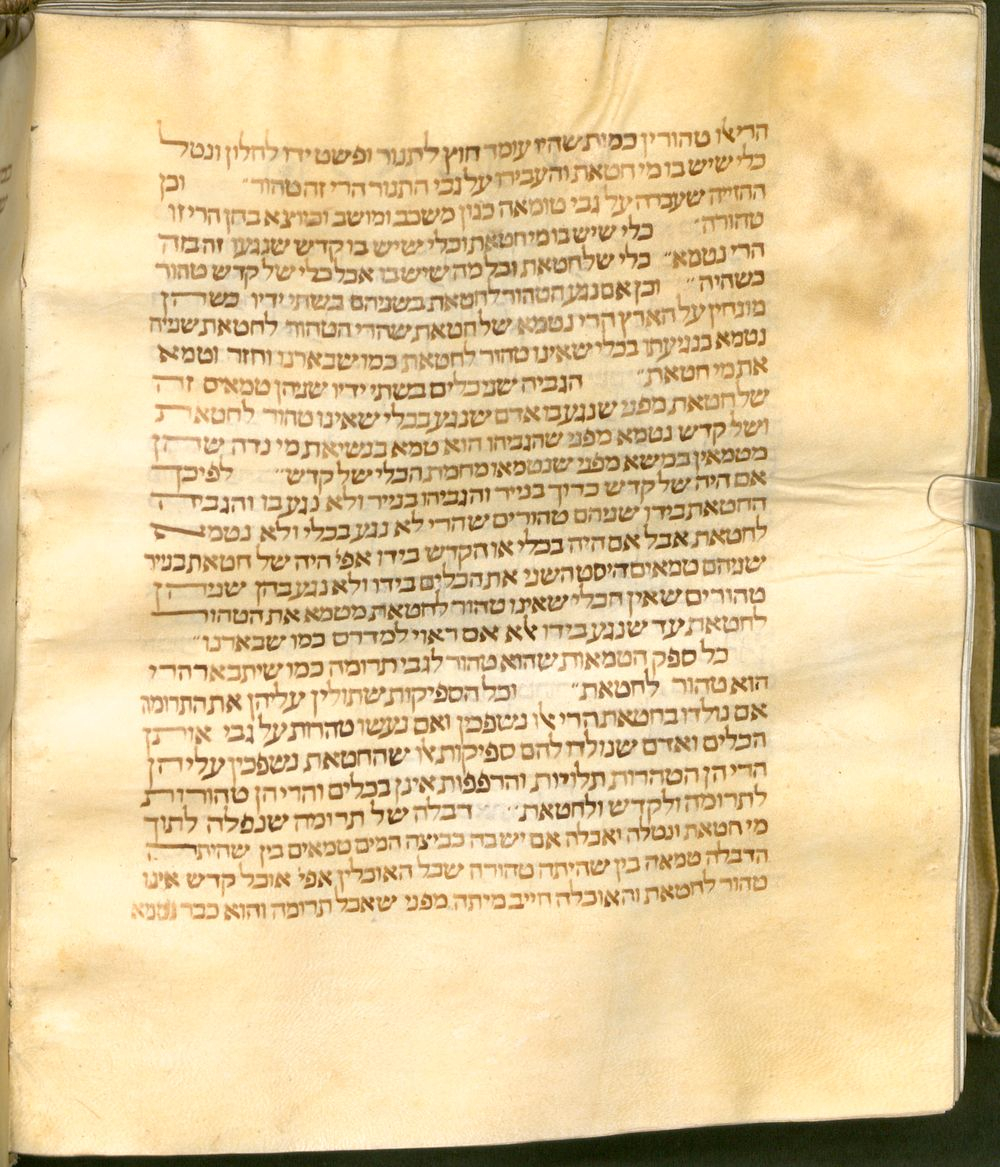 הרי אלו טהורין כמות שהיו עומד חוץ לתנור ופשט ידו לחלון ונטל
כלי שיש בו מי חטאת והעבירו על גבי התנור הרי זה טהור״ וכן
ההזייה שעברה על גבי טומאה כגון משכב ומושב וכיוצא בהן הרי זו
טהורה״ כלי שיש בו מי חטאת וכלי שיש בו קדש שנגעו זה בזה
הרי נטמא״ כלי של חטאת וכל מה שיש בו אבל כלי של קדש טהור
כשהיה״ וכן אם נגע הטהור לחטאת בשניהם בשתי ידיו כשהן
מונחין על הארץ הרי נטמא של חטאת שהרי הטהור לחטאת שניה
נטמא בנגיעתו בכלי שאינו טהור לחטאת כמו שבארנו וחזר וטמא
את מי חטאת״ הגביה שני כלים בשתי ידיו שניהן טמאים זה
של חטאת מפני שנגע בו אדם שנגע בכלי שאינו טהור לחטאת
ושל קדש נטמא מפני שהגביהו הוא טמא בנשיאת מי נדה שהן
מטמאין במשא מפני שנטמאו מחמת הכלי של קדש״ לפיכך
אם היה של קדש כרוך בנייר והגביהו בנייר ולא נגע בו והגביה
החטאת בידו שניהם טהורים שהרי לא נגע בכלי ולא נטמא
לחטאת אבל אם היה בכלי או הקדש בידו אפי׳ היה של חטאת בנייר
שניהם טמאים היסט השני את הכלים בידו ולא נגע בהן שניהן
טהורים שאין הכלי שאינו טהור לחטאת מטמא את הטהור
לחטאת עד שנגע בידו אלא אם ראוי למדרס כמו שבארנו״
כל ספק הטמאות שהוא טהור לגבי תרומה כמו שיתבאר הרי
הוא טהור לחטאת״ וכל הספיקות שתולין עליהן את התרומה
אם נולדו בחטאת הרי אלו נשפכין ואם נעשו טהרות על גבי אותן
הכלים ואדם שנולדו להם ספיקות אלו שהחטאת נשפכין עליהן
הרי הן הטהרות תלויות והרפפות אינן בכלים והרי הן טהורות
לתרומה ולקדש ולחטאת״ דבלה של תרומה שנפלה לתוך
מי חטאת ונטלה ואכלה אם יש בה כביצה המים טמאים בין שהיתה
הדבלה טמאה בין שהיתה טהורה שכל האוכלין אפי׳ אוכל קדש אינו
טהור לחטאת והאוכלה חייב מיתה מפני שאכל תרומה והוא כבר נטמא